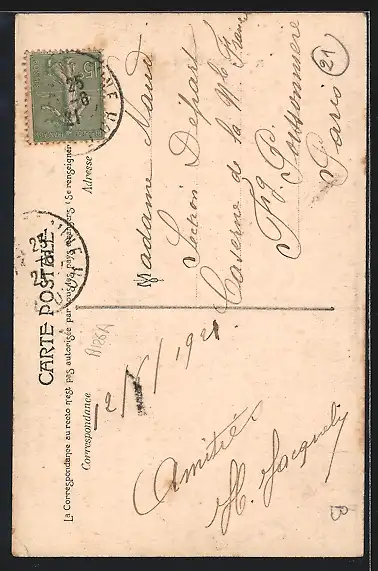 CARTE POSTALE
La Correspondance au recto n'est pas autorisée par tous les pays étrangers (Se renseigner
Correspondance
Adresse
15
25
21
A128A
12/6/1921
Amitiés
H. Jacquely
Madame
Section Départ
Caserne de la
Fg. Poissonnière
Paris
21